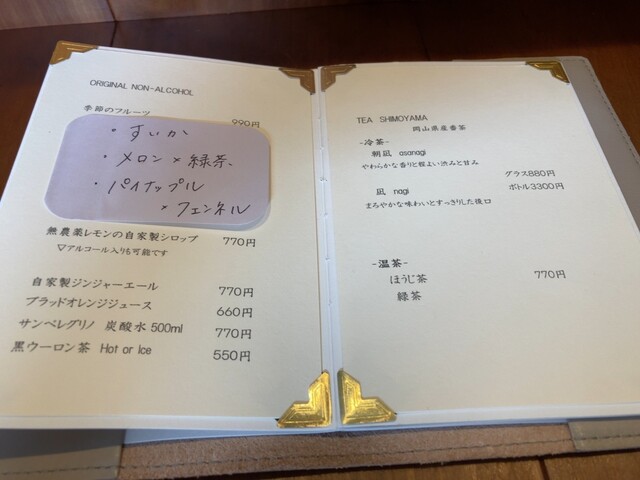 ORIGINAL NON-ALCOHOL
季節のフルーツ 990円
・すいか
・メロン×緑茶、
・パイナップル
×フェンネル
無農薬レモンの自家製シロップ 770円
▽アルコール入りも可能です
自家製ジンジャーエール 770円
ブラッドオレンジジュース 660円
サンペレグリノ 炭酸水500ml 770円
黒ウーロン茶 Hot or Ice 550円
TEA SHIMOYAMA
岡山県産番茶
-冷茶-
朝凪 asanagi
やわらかな香りと程よい渋みと甘み
グラス880円
凪 nagi ボトル3300円
まろやかな味わいとすっきりした後口
-温茶-
ほうじ茶 770円
緑茶